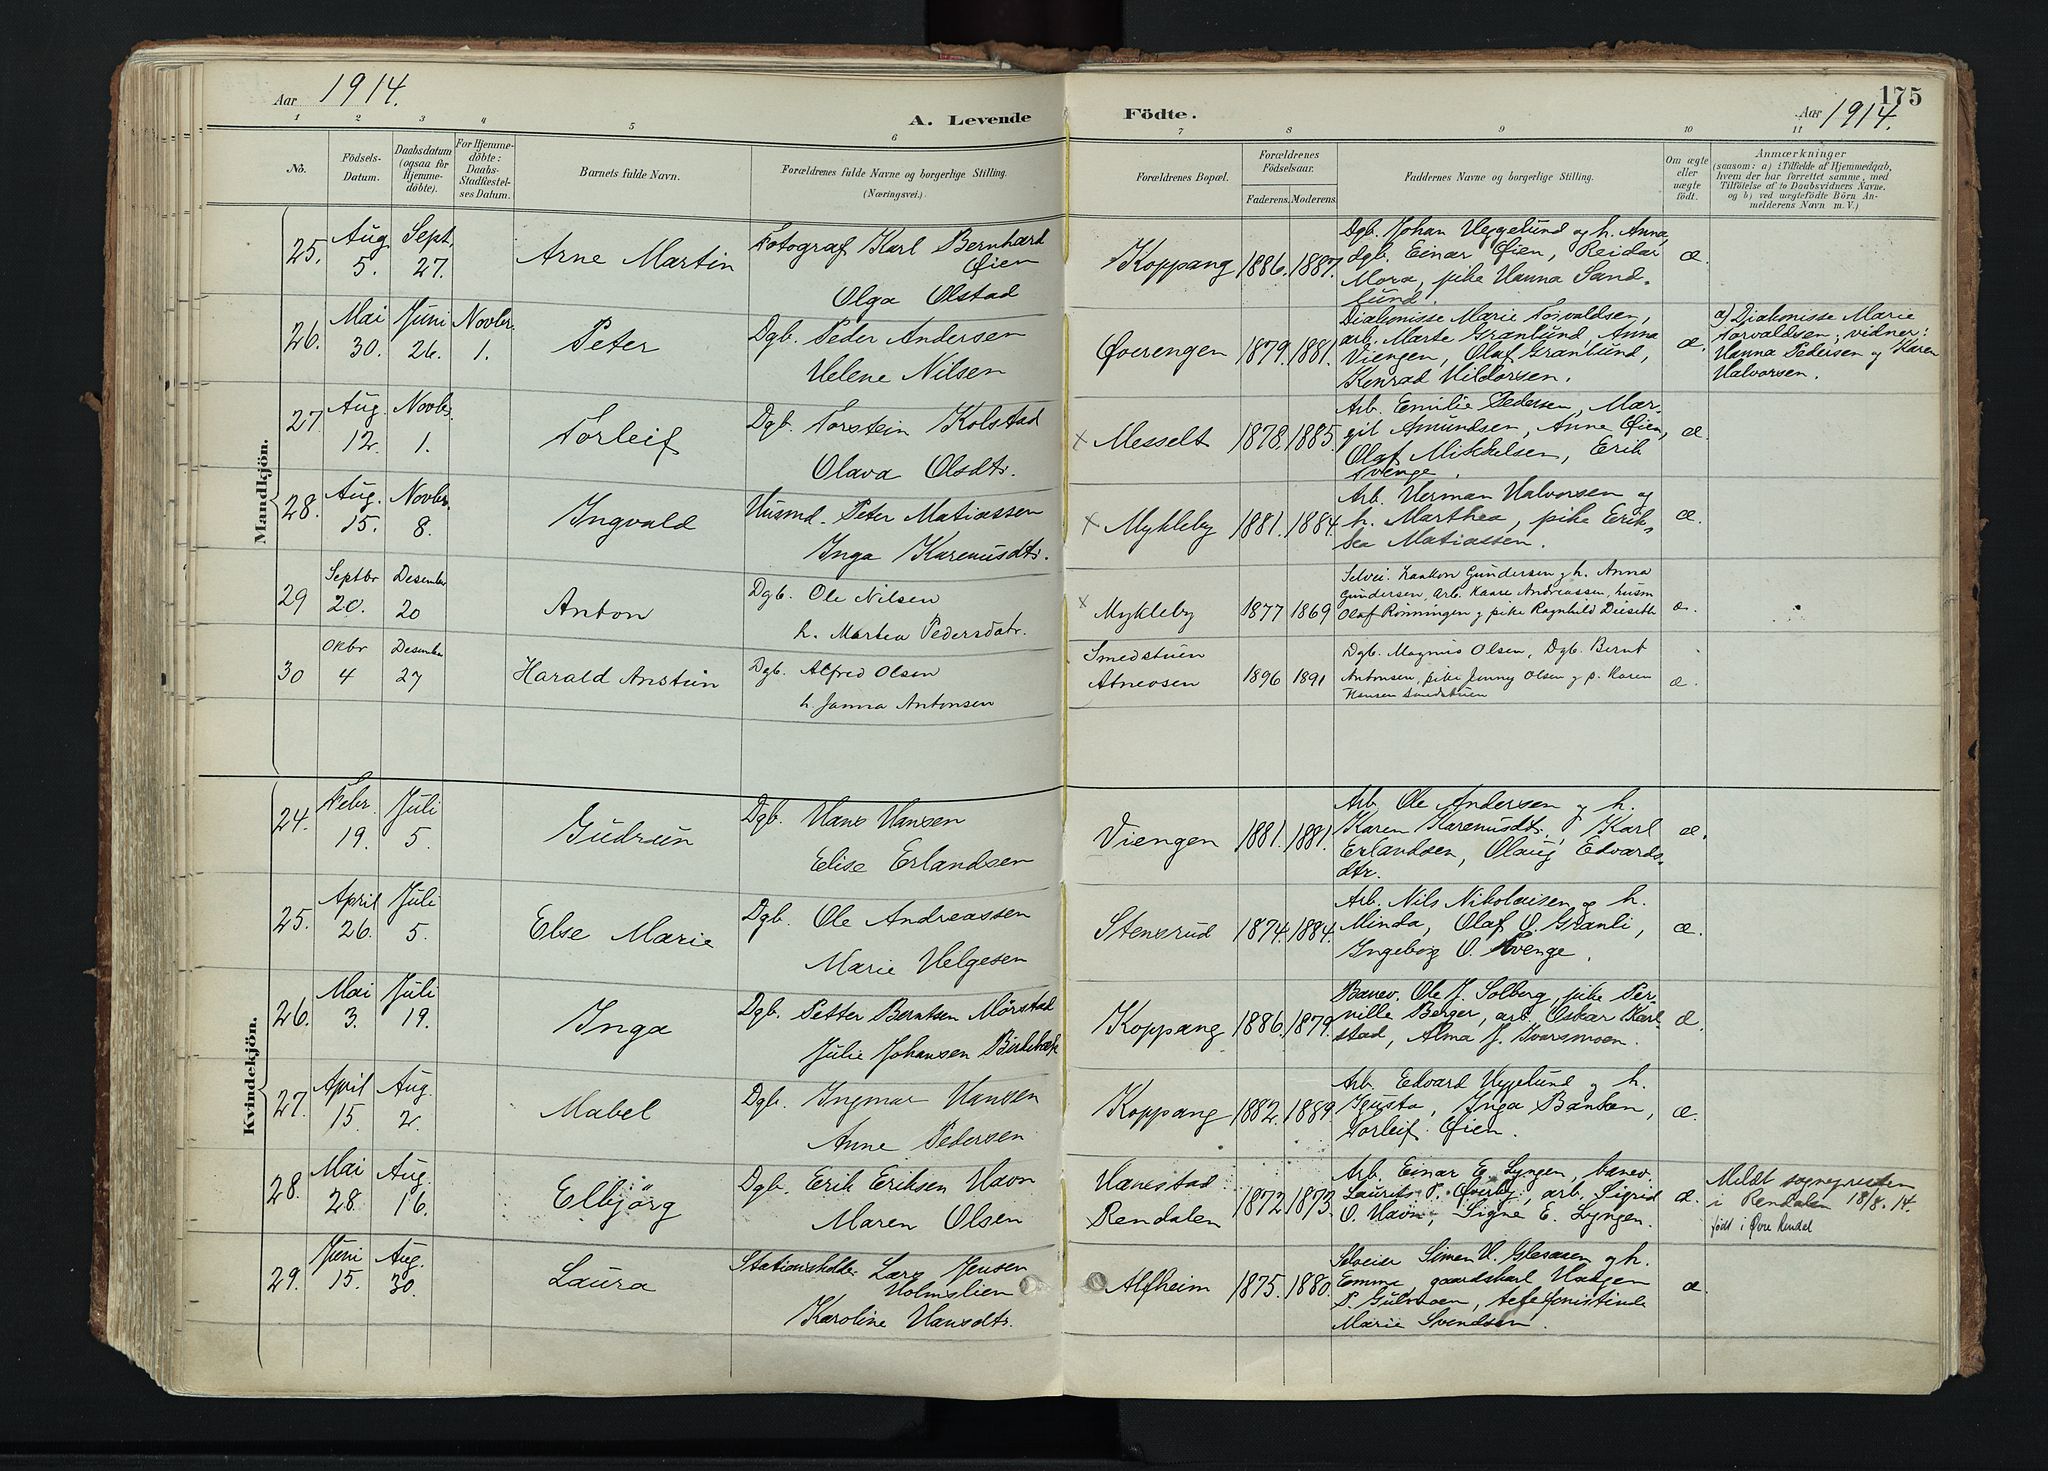 Aar 1914.
A. Levende Födte.
Aar 1914.
175
1 2 3 4 5 6 7 8 9 10 11
No.
Födsels-
Datum.
Daabsdatum
(ogsaa for
Hjemme-
döbte).
For Hjemme-
döbte:
Daabs-
Stadfæstel-
ses Datum.
Barnets fulde Navn.
Forældrenes fulde Navne og borgerlige Stilling.
(Næringsvei.)
Forældrenes Bopæl.
Forældrenes
Födselsaar.
Faderens. Moderens.
Faddernes Navne og borgerlige Stilling.
Om ægte
eller
uægte
födt.
Anmærkninger
(saasom: a) i Tilfælde af Hjemmedaab,
hvem der har forrettet samme, med
Tilföielse af to Daabsvidners Navne.
og b) ved uægtefödte Börn An-
melderens Navn m. V.)
Mandkjön.
25. Aug. 5. Sept. 27.
Arne Martin
Fotograf Karl Bernhard
Øien
Olga Olstad
Koppang 1886. 1887.
Dgb. Johan Heggelund og h. Anna,
dgb. Einar Øien, Reidar
Mora, pike Hanna Sand-
lund.
æ.
26. Mai 30. Juni 26. Novbr. 1.
Peter
Dgb. Peder Andersen
Helene Nilsen
Øverengen 1879. 1881.
Diakonisse Marie Torvaldsen,
arb. Marte Granlund, Anna
Viengen, Olaf Granlund,
Konrad Hildorsen.
æ.
a) Diakonisse Marie
Torvaldsen; vidner:
Hanna Pedersen og Karen
Halvorsen.
27. Aug. 12. Novbr. 1.
Torleif
Dgb. Torstein Kolstad
Olava Olsdtr.
x Messelt 1878. 1885.
Arb. Emilie Pedersen, Mar-
git Amundsen, Anne Øien,
Olaf Mikkelsen, Erik
Trænge.
æ.
28. Aug. 15. Novbr. 8.
Ingvald
Husmd. Peter Matiassen
Inga Karenusdtr.
x Mykleby 1881. 1884.
Arb. Herman Halvorsen og
h. Marthea, pike Erik-
sea Matiassen.
æ.
29 Septbr 20. Desember 20
Anton
Dgb. Ole Nilsen
h. Martea Pedersdatr.
x Mykleby 1877 1869
Selvei. Haakon Gundersen og h. Anna
Gundersen, arb. Kaare Andreassen, husm
Olaf Rønningen og pike Ragnhild Deiseth
æ.
30 Oktbr 4 Desember 27
Harald Anstin
Dgb. Alfred Olsen
h. Janna Antonsen
Smedstuen
Atneosen 1896 1891
Dgb. Magnus Olsen, Dgb. Bernt
Antonsen, pike Jenny Olsen og p. Karen
Hansen Smedstuen
æ.
Kvindekjön.
24. Febr. 19. Juli 5.
Gudrun
Dgb. Hans Hansen
Elise Erlandsen
Viengen 1881. 1881.
Arb. Ole Andersen og h.
Karen Karenusdtr., Karl
Erlandsen, Olaug Edvards-
dtr.
æ.
25. April 26. Juli 5.
Else Marie
Dgb. Ole Andreassen
Marie Helgesen
Stensrud 1874. 1884.
Arb. Nils Nikolaisen og h.
Minda, Olaf O. Granli,
Ingeborg O. Trænge.
æ.
26. Mai 3. Juli 19.
Inga
Dgb. Petter Berntsen Mørstad
Julie Johansen
Koppang 1886. 1879.
Banev. Ole J. Solberg, pike Per-
nille Berger, arb. Oskar Karl-
stad, Alma J. Kvarsmoen.
æ.
27. April 15. Aug. 2.
Mabel
Dgb. Ingmar Hansen
Anne Pedersen
Koppang 1882. 1889.
Arb. Edvard Heggelund og h.
Gusta, Inga Banken,
Torleif Øien.
æ.
28. Mai 28. Aug. 16.
Elbjörg
Dgb. Erik Eriksen Havn
Maren Olsen
Hanestad
Rendalen 1872 1873.
Arb. Einar E. Lyngen, banev.
Laurits P. Øverby, arb. Sigrid
O. Havn, Signe E. Lyngen.
æ.
Meldt sognepresten
i Rendalen 18/8. 14.
født i Øvre Rendal
29. Juni 15. Aug. 30.
Laura
Stationsholder Lars Jensen
Holmslien
Karoline Hansdtr.
Alfheim 1875. 1880.
Selveier Simen H. Glesåsen og h.
Emma, gaardskarl
P. Gulmoen, telefonistinde
Marie Svendsen.
æ.